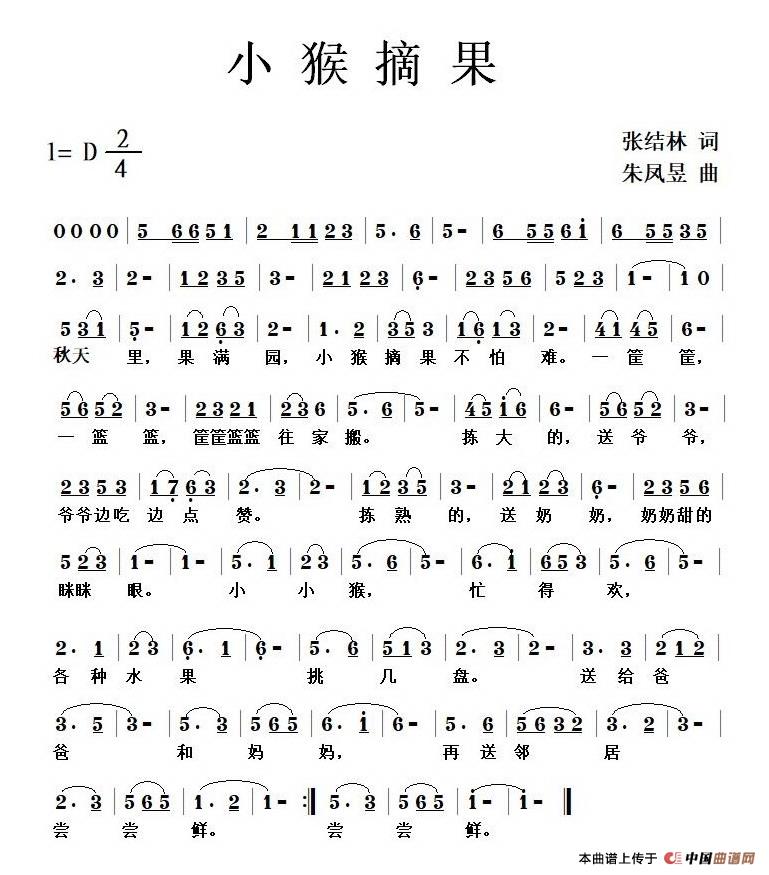 小猴摘果
1= D 2/4
张结林 词
朱凤昱 曲
0 0 0 0 | 5 6 6 5 1 | 2 1 1 2 3 | 5 . 6 | 5 - | 6 5 5 6 i | 6 5 5 3 5 |
2 . 3 | 2 - | 1 2 3 5 | 3 - | 2 1 2 3 | 6 - | 2 3 5 6 | 5 2 3 | 1 - | 1 0 |
5 3 1 | 5 - | 1 2 6 3 | 2 - | 1 . 2 | 3 5 3 | 1 6 1 3 | 2 - | 4 1 4 5 | 6 - |
秋天 里, 果 满 园, 小 猴 摘 果 不 怕 难。 一 筐 筐,
5 6 5 2 | 3 - | 2 3 2 1 | 2 3 6 | 5 . 6 | 5 - | 4 5 i 6 | 6 - | 5 6 5 2 | 3 - |
一 篮 篮, 筐筐篮篮 往 家 搬。 拣 大 的, 送 爷 爷,
2 3 5 3 | 1 7 6 3 | 2 . 3 | 2 - | 1 2 3 5 | 3 - | 2 1 2 3 | 6 - | 2 3 5 6 |
爷爷边吃 边 点 赞。 拣 熟 的, 送 奶 奶, 奶奶甜的
5 2 3 | 1 - | 1 - | 5 . 1 | 2 3 | 5 . 6 | 5 - | 6 . i | 6 5 3 | 5 . 6 | 5 - |
眯眯 眼。 小 小 猴, 忙 得 欢,
2 . 1 | 2 3 | 6 . 1 | 6 - | 5 . 6 | 5 1 3 | 2 . 3 | 2 - | 3 . 3 | 2 1 2 |
各 种 水 果 挑 几 盘。 送 给 爸
3 . 5 | 3 - | 2 . 3 | 5 6 5 | 6 . i | 6 - | 5 . 5 | 5 6 3 2 | 3 . 2 | 3 - |
爸 和 妈 妈, 再 送 邻 居
2 . 3 | 5 6 5 | 1 . 2 | 1 - :| 5 . 3 | 5 6 5 | i - | i - ‖
尝 尝 鲜。 尝 尝 鲜。
本曲谱上传于 中国曲谱网